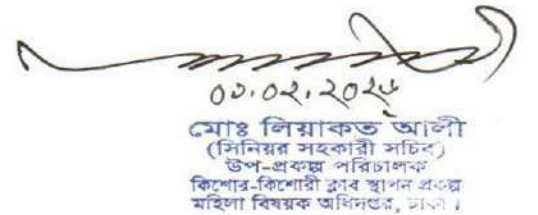 ০১.০২.২০২৬
মোঃ লিয়াকত আলী
(সিনিয়র সহকারী সচিব)
উপ-প্রকল্প পরিচালক
কিশোর-কিশোরী ক্লাব স্থাপন প্রকল্প
মহিলা বিষয়ক অধিদপ্তর, ঢাকা।